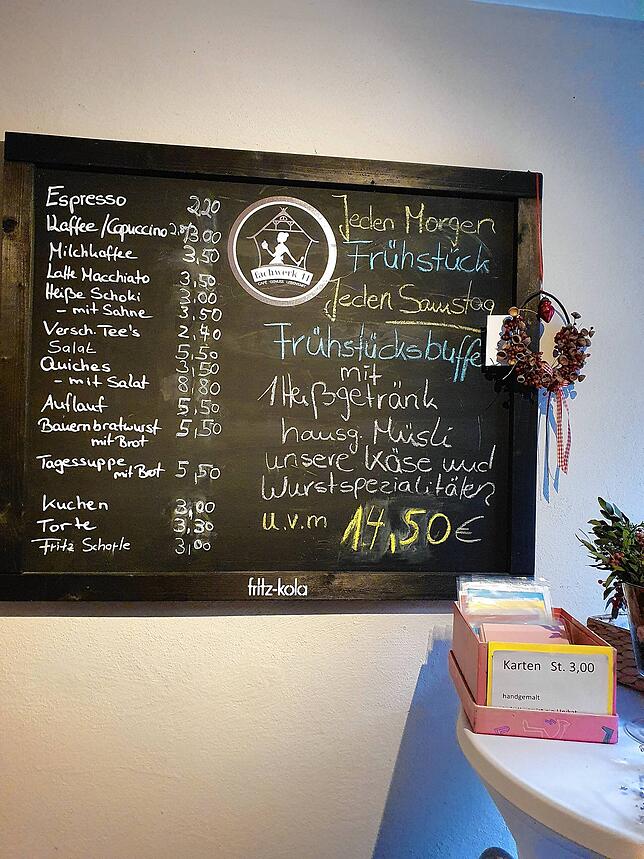 Espresso 2,20
Kaffee/Capuccino 2,80/3,00
Milchkaffee 3,50
Latte Macchiato 3,50
Heiße Schoki 3,00
- mit Sahne 3,50
Versch. Tee's 2,40
Salat 5,50
Quiches 3,50
- mit Salat 8,80
Auflauf 5,50
Bauernbratwurst 5,50
mit Brot
Tagessuppe
mit Brot 5,50
Kuchen 3,00
Torte 3,30
Fritz Schorle 3,00
fachwerk 11
CAFÉ GENUSS LEBENSART
Jeden Morgen
Frühstück
Jeden Samstag
Frühstücksbuffe
mit
1 Heißgetränk
hausg. Müsli
unsere Käse und
Wurstspezialitäten
u.v.m 14,50€
fritz-kola
Karten St. 3,00
handgemalt